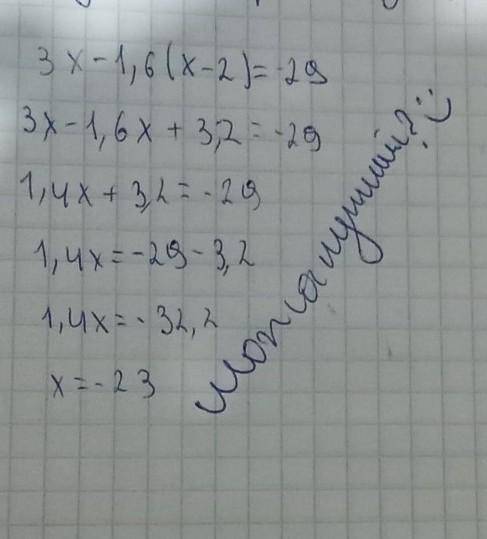 3x-1,6(x-2)=-29
3x-1,6x+3,2=-29
1,4x+3,2=-29
1,4x=-29-3,2
1,4x=-32,2
x=-23
лучший? :)